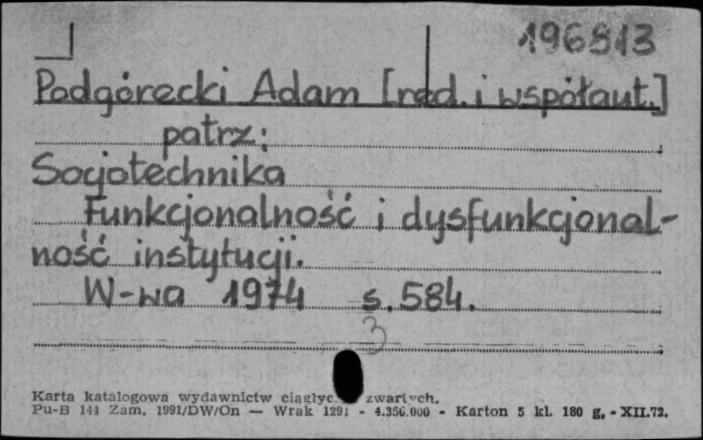 196813
Podgórecki Adam [red. i współaut.]
patrz:
Socjotechnika
Funkcjonalność i dysfunkcjonal-
ność instytucji.
W-wa 1974 s. 584.
3
Karta katalogowa wydawnictw zwartych.
Pu-B 144 Zam. 1991/DW/On — Wrak 1291 - 4.356.000 - Karton 5 kl. 180 g. - XII.72.